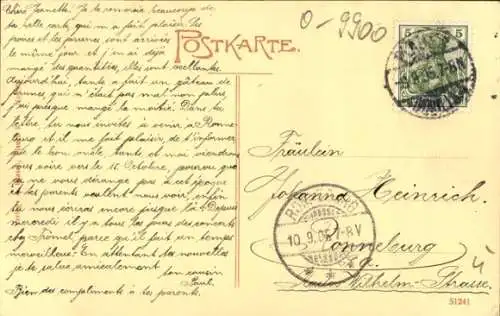 Chère Jeannette! Je te remercie beaucoup de
ta belle carte, qui m'a fait plaisir. Les
poires et les prunes sont arrivées
le même jour et j'en ai déjà
mangé des quantités, elles sont excellentes.
Aujourd'hui, tante a fait un gâteau de
prunes qui n'était pas mal non plus,
j'ai presque mangé la moitié. Dans ta
lettre, tu nous invites à venir à
et il me fait plaisir, de t'informer
que le bon oncle, tante et moi viendrons
vous voir vers le 15 Octobre, pourvu que
ça ne vous dérange pas à cet époque
et tes parents veulent nous voir, enfin,
nous écrirons encore jusque là. Depuis
mercredi il y a tous les jours des concerts
chez parce qu'il fait un temps
merveilleux! En attendant tes nouvelles
je te salue amicalement
ton cousin
Paul.
Bien des compliments à tes parents.
POSTKARTE.
0-9900
5 5
10.9.06 7-8V
Fräulein
Johanna Heinrich.
Ronneburg
Wilhelm-Strasse.
4
51241